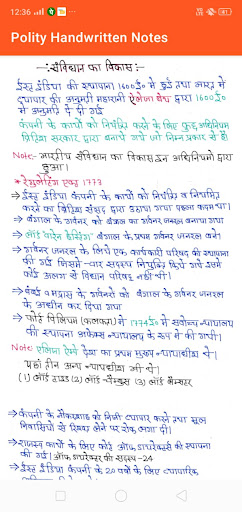 12:36
81
Polity Handwritten Notes
संविधान का विकास
ईस्ट इंडिया की स्थापना 1600ई० में हुई तथा भारत में
व्यापार की अनुमति महारानी ऐलिजा बेथ द्वारा 1600ई०
में अनुमति दे दी गई
कंपनी के कार्यो को नियंत्रित करने के लिए कुछ अधिनियम
ब्रिटिश सरकार द्वारा बनाये गये जो निम्न प्रकार से हैं
Note:- भारतीय संविधान का विकास इन अधिनियमों द्वारा
हुआ।
* रेगुलेटिंग एक्ट 1773
→ ईस्ट इंडिया कंपनी के कार्यो को नियंत्रित व नियमित
करने का ब्रिटिश संसद द्वारा उठाया गया पहला कदम था।
→ बंगाल के गवर्नर को बंगाल का गवर्नर जनरल बनाया गया
→ लॉर्ड वारेन हेस्टिंग बंगाल के प्रथम गवर्नर जनरल बने।
→ गवर्नर जनरल के लिये एक कार्यकारी परिषद की स्थापना
की गई जिसमें चार सदस्य नियुक्ति किये गये इसमें
कोई अलग से विधान परिषद नहीं थी।
→ बंबई व मद्रास के गवर्नरों को बंगाल के गवर्नर जनरल
के अधीन कर दिया गया
→ फोर्ट विलियम (कलकत्ता) में 1774ई० में सर्वोच्च न्यायालय
की स्थापना अपेक्स न्यायालय के रूप में की गयी।
Note एलिजा इम्पे देश का प्रथम मुख्य न्यायाधीश थे।
यहां तीन अन्य न्यायाधीश भी थे।
(1) लॉर्ड हाइड (2) लॉर्ड चैम्बर्स (3) लॉर्ड लैमेस्टर
→ कंपनी के नौकरशाह को निजी व्यापार करने तथा मूल
निवासियों से रिश्वत लेने पर रोक लगा दी।
→ राजस्व कार्यो के लिए कोर्ट ऑफ डायरेक्टर्स की स्थापना
की गई। ऑफ डायरेक्टर की सदस्य -24
→ ईस्ट इंडिया कंपनी के 20 वर्षो के लिए व्यापारिक